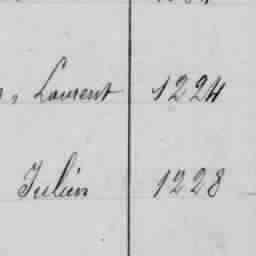 , Laurent 1224
Julien 1228